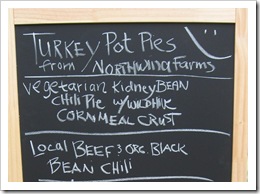 TURKEY Pot Pies
from NORTHWIND farms
vegetarian kidney BEAN
Chili Pie w/ WILD HIVE
CORN MEAL CRUST
LOCAL BEEF & ORG BLACK
BEAN Chili